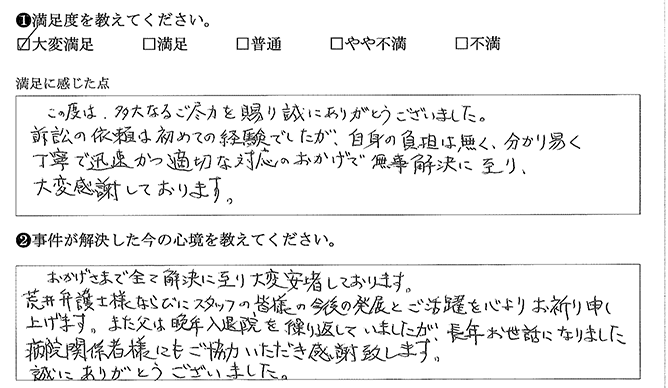 ❶満足度を教えてください。
☑大変満足 □満足 □普通 □やや不満 □不満
満足に感じた点
この度は、多大なるご尽力を賜り誠にありがとうございました。
訴訟の依頼は初めての経験でしたが、自身の負担は無く、分かり易く
丁寧で迅速かつ適切な対応のおかげで無事解決に至り、
大変感謝しております。
❷事件が解決した今の心境を教えてください。
おかげさまで全て解決に至り大変安堵しております。
荒井弁護士様ならびにスタッフの皆様の今後の発展とご活躍を心よりお祈り申し
上げます。また父は晩年入退院を繰り返していましたが、長年お世話になりました
病院関係者様にもご協力いただき感謝致します。
誠にありがとうございました。